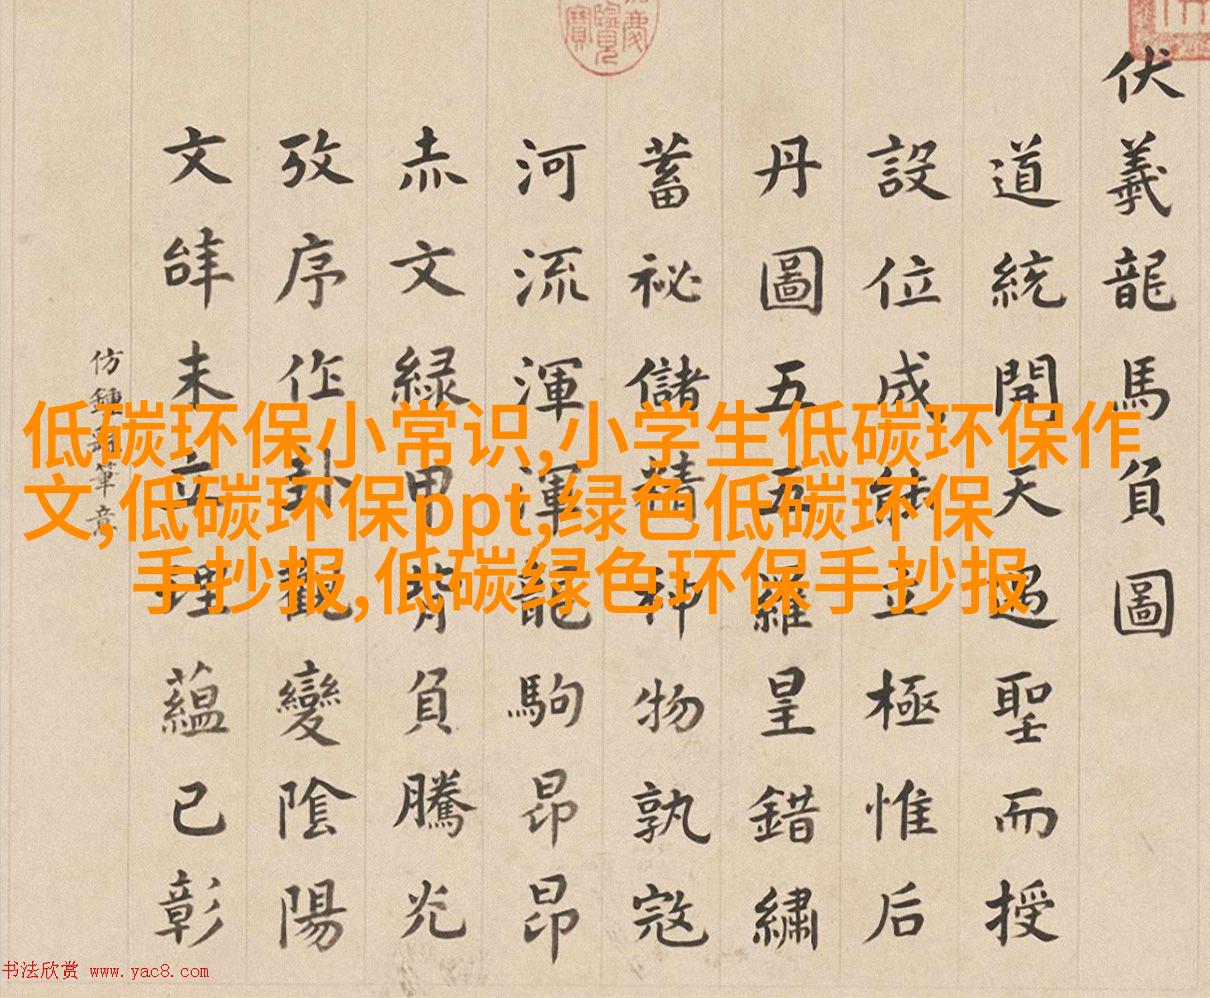 伏羲龍馬負圖
道統開天聖而授
設位成立極惟后
丹圖五五羅皇錯繡
蓄祕儲精神物孰寇
河流渾渾龍駒昂昂
赤文緑甲背負騰光
攷序作卦觀變陰陽
文辝未立理蘊已彰
仿鍾繇筆意
低碳环保小常识,小学生低碳环保作
文,低碳环保ppt,绿色低碳环保
手抄报,低碳绿色环保手抄报
书法欣赏 www.yac8.com